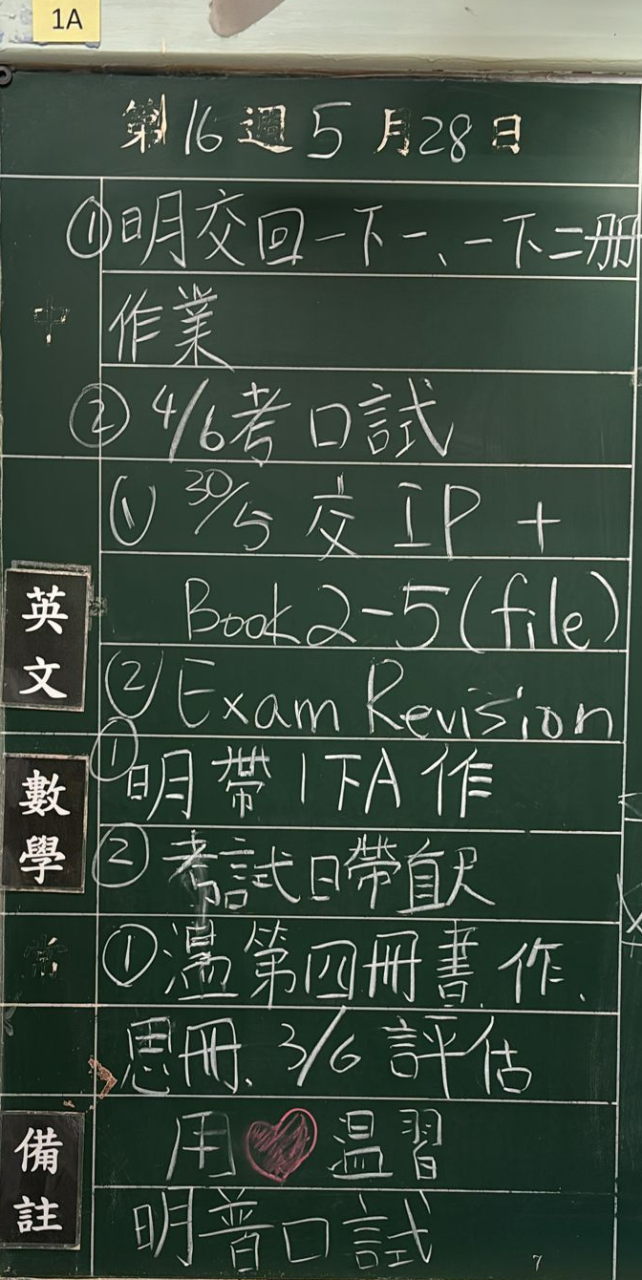 1A
第16週5月28日
①明交回一下一、一下二册
中 作業
②4/6考口試
①30/5交IP+
英文 Book2-5(file)
②Exam Revision
數學 ①明帶1下A作
②考試日帶直尺
常 ①溫第四冊書、作、
思冊、3/6評估
備註 用❤温習
明普口試
7